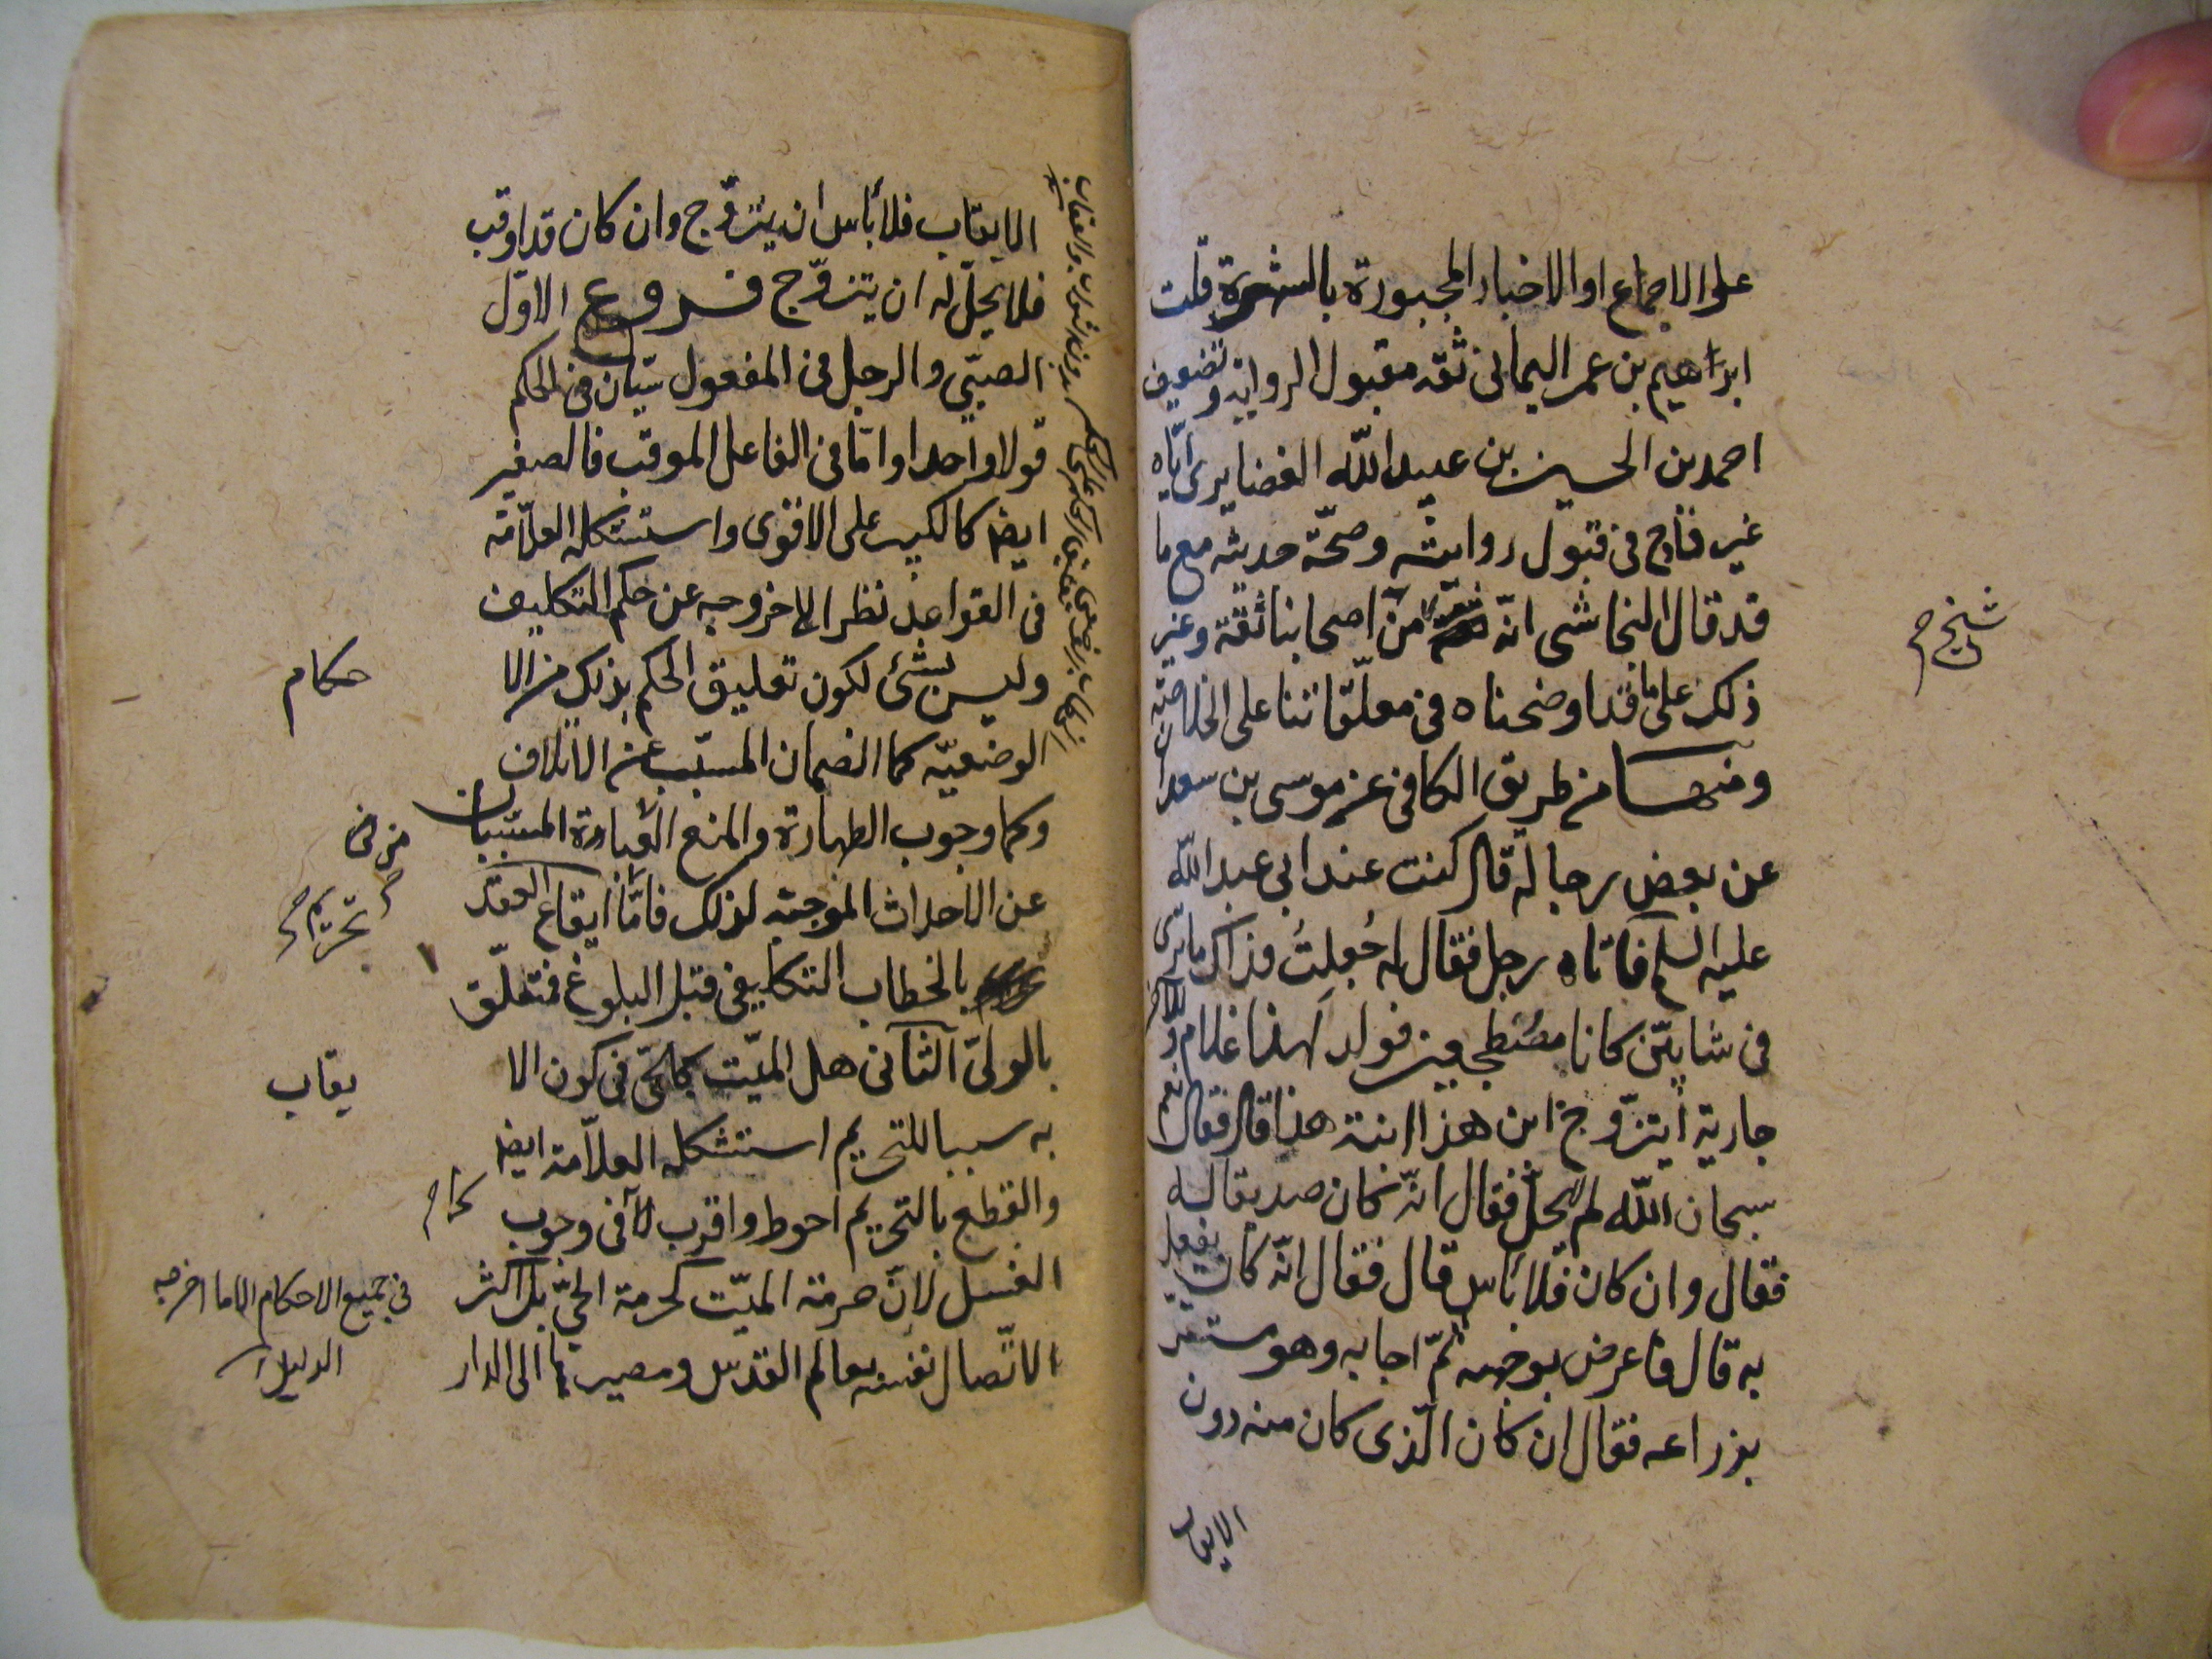 على الاجماع او الاخبار المجبورة بالشهرة قلت
ابراهيم بن عمر اليمانى ثقه مقبول الروايه وتضعيف
احمد بن الحسين بن عبيد اللّه الغضايرى ايّاه
غير قادح فى قبول روايته وصحّة حديثه مع ما
قد قال النجاشى انّه شيخ من اصحابنا ثقة وغير
شيخ
ذلك على ما قد اوضحناه فى معلّقاتنا على الخلاصة
ومنها من طريق الكافى عن موسى بن سعدان
عن بعض رجاله قال كنت عند ابى عبد اللّه
عليه السلم فاتاه رجل فقال له جُعِلتُ فداك ما ترى
فى شابّين كانا مضطجعين فولد لهذا غلام وللاخر
جارية أيتزوّج ابن هذا ابنة هذا قال فقال نعم
سبحان اللّه لم لا يحلّ فقال انّه كان صديقا له
فقال وان كان فلا بأس قال فقال انّه كان يفعل
به قال فاعرض بوجهه ثمّ اجابه وهو مستتر
بذراعه فقال ان كان الّذى كان منه دون
الايقاب
الايقاب فلا بأس ان يتزوّج وان كان قد اوقب
فلا يحلّ له ان يتزوّج فروع الاوّل
الصبىّ والرجل فى المفعول سيّان فى الحكم
قولا واحدا وامّا فى الفاعل الموقب فالصغير
ايضا كالكبير على الاقوى واستشكله العلاّمة
فى القواعد نظرا الى خروجه عن حكم التكليف
وليس بشئ لكون تعليق الحكم بذلك من الا
حكام
الوضعيّه كما الضمان المسبّب عن الاتلاف
وكما وجوب الطهارة والمنع العبادة المسببان
من فى
عن الاحداث الموجبه لذلك فامّا ايقاع العقد
تحريم
بالخطاب التكليفى قبل البلوغ فتعلّق
بالولىّ الثانى هل الميّت كالحىّ فى كون الا
يقاب
به سببا للتحريم استشكله العلاّمة ايضا
والقطع بالتحريم احوط واقرب لا فى وجوب
الغسل لانّ حرمة الميّت كحرمة الحىّ بل اكثر
فى جميع الاحكام الا ما اخرجه
الدليل
لاتّصال نفسه بعالم القدس ومصيرها الى الدار